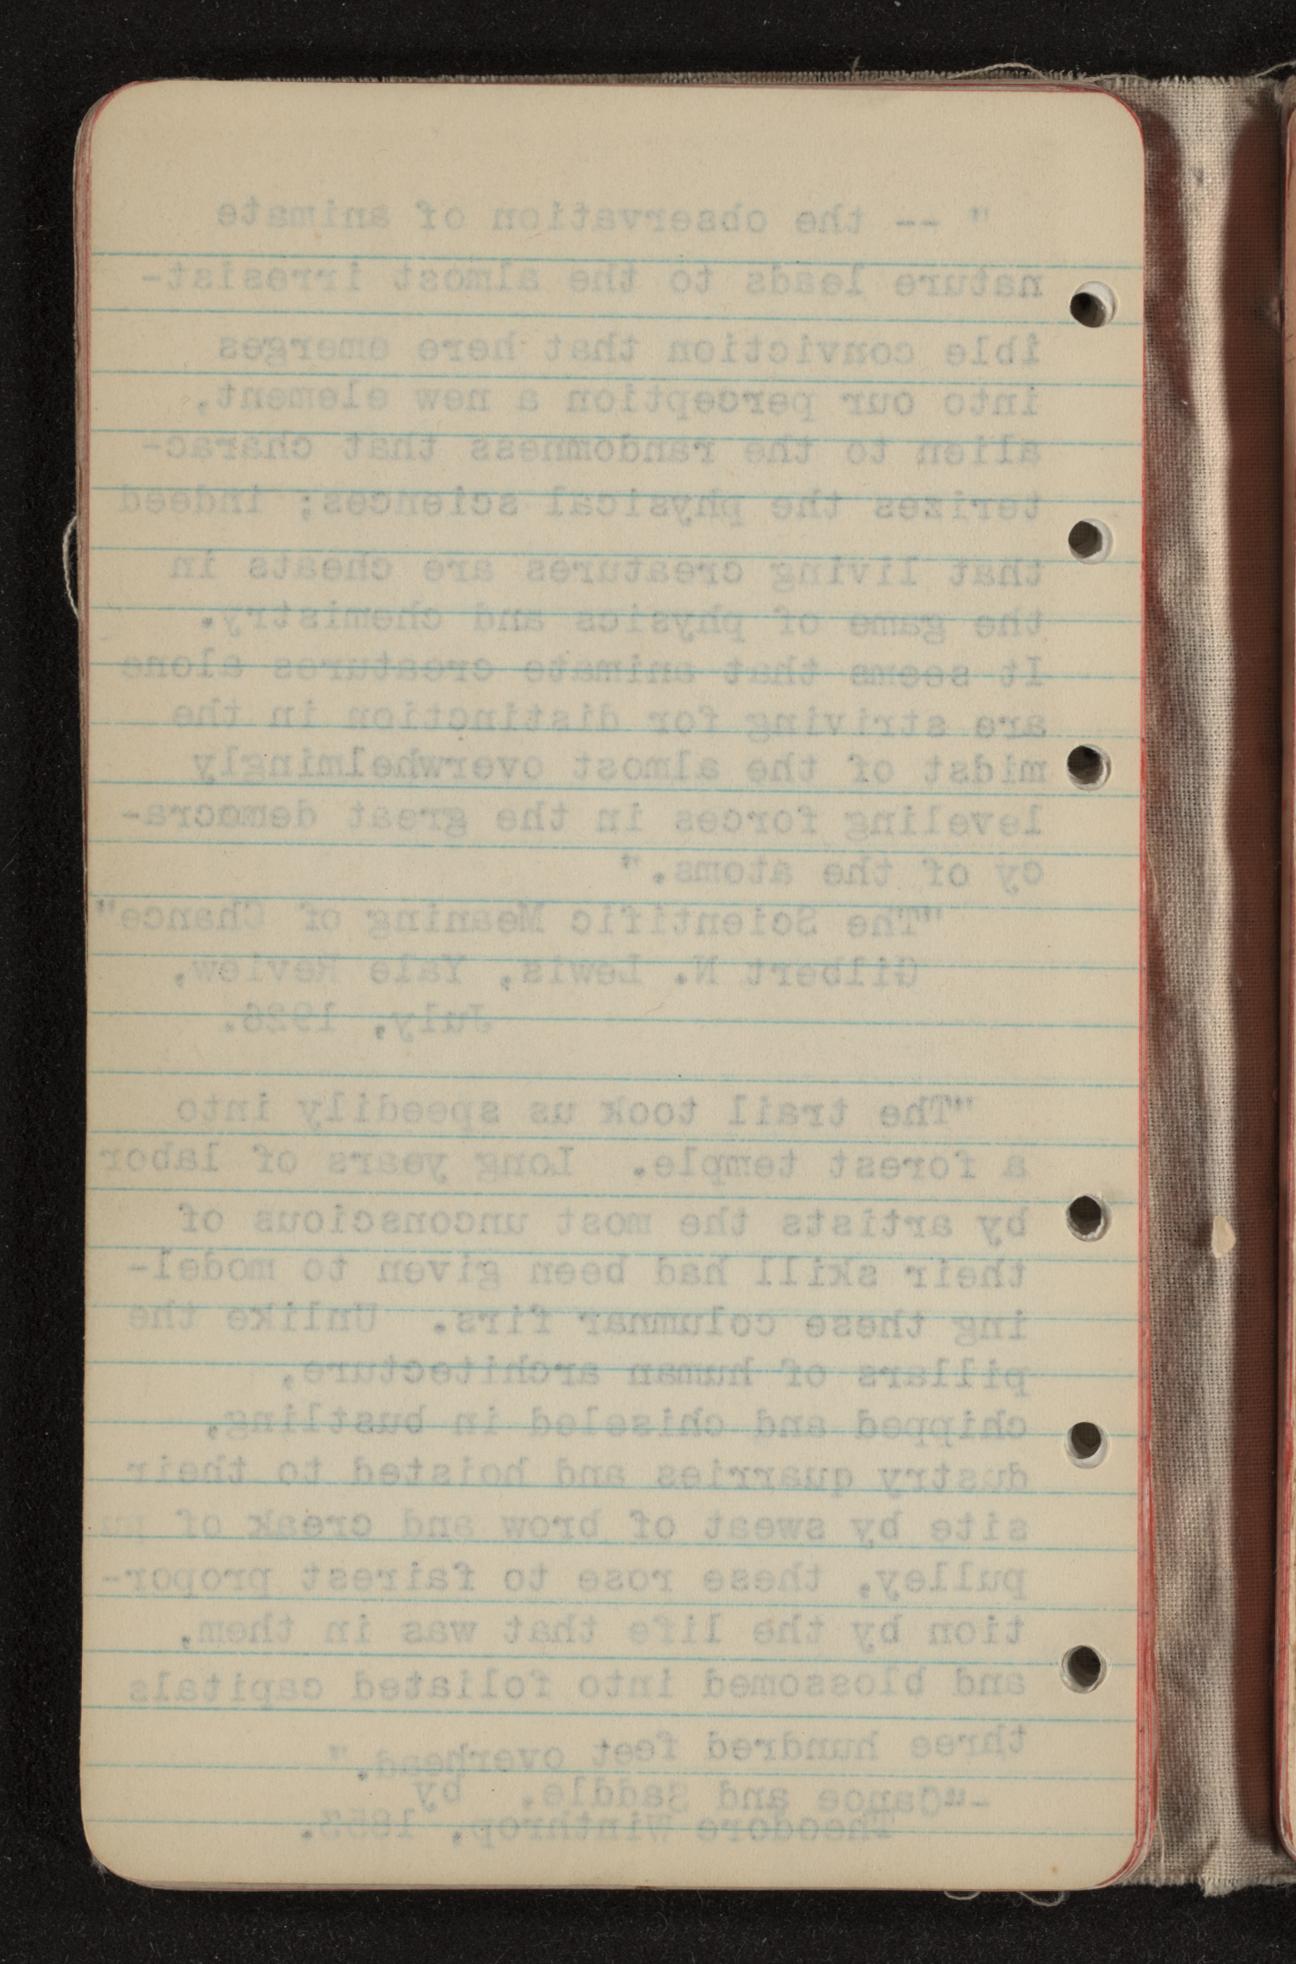 " -- the observation of animate
nature leads to the almost irresist-
ible conviction that here emerges
into our perception a new element,
alien to the randomness that charac-
terizes the physical sciences; indeed
that living creatures are cheats in
the game of physics and chemistry.
It seems that animate creatures alone
are striving for distinction in the
midst of the almost overwhelmingly
leveling forces in the great democra-
cy of the atoms."
"The Scientific Meaning of Chance"
Gilbert N. Lewis, Yale Review,
July, 1926.
"The trail took us speedily into
a forest temple. Long years of labor
by artists the most unconscious of
their skill had been given to model-
ing these columnar firs. Unlike the
pillars of human architecture,
chipped and chiseled in bustling,
dustry quarries and hoisted to their
site by sweat of brow and creak of pu
pulley, these rose to fairest propor-
tion by the life that was in them,
and blossomed into foliated capitals
three hundred feet overhead."
-"Canoe and Saddle. by
Theodore Winthrop, 1853.